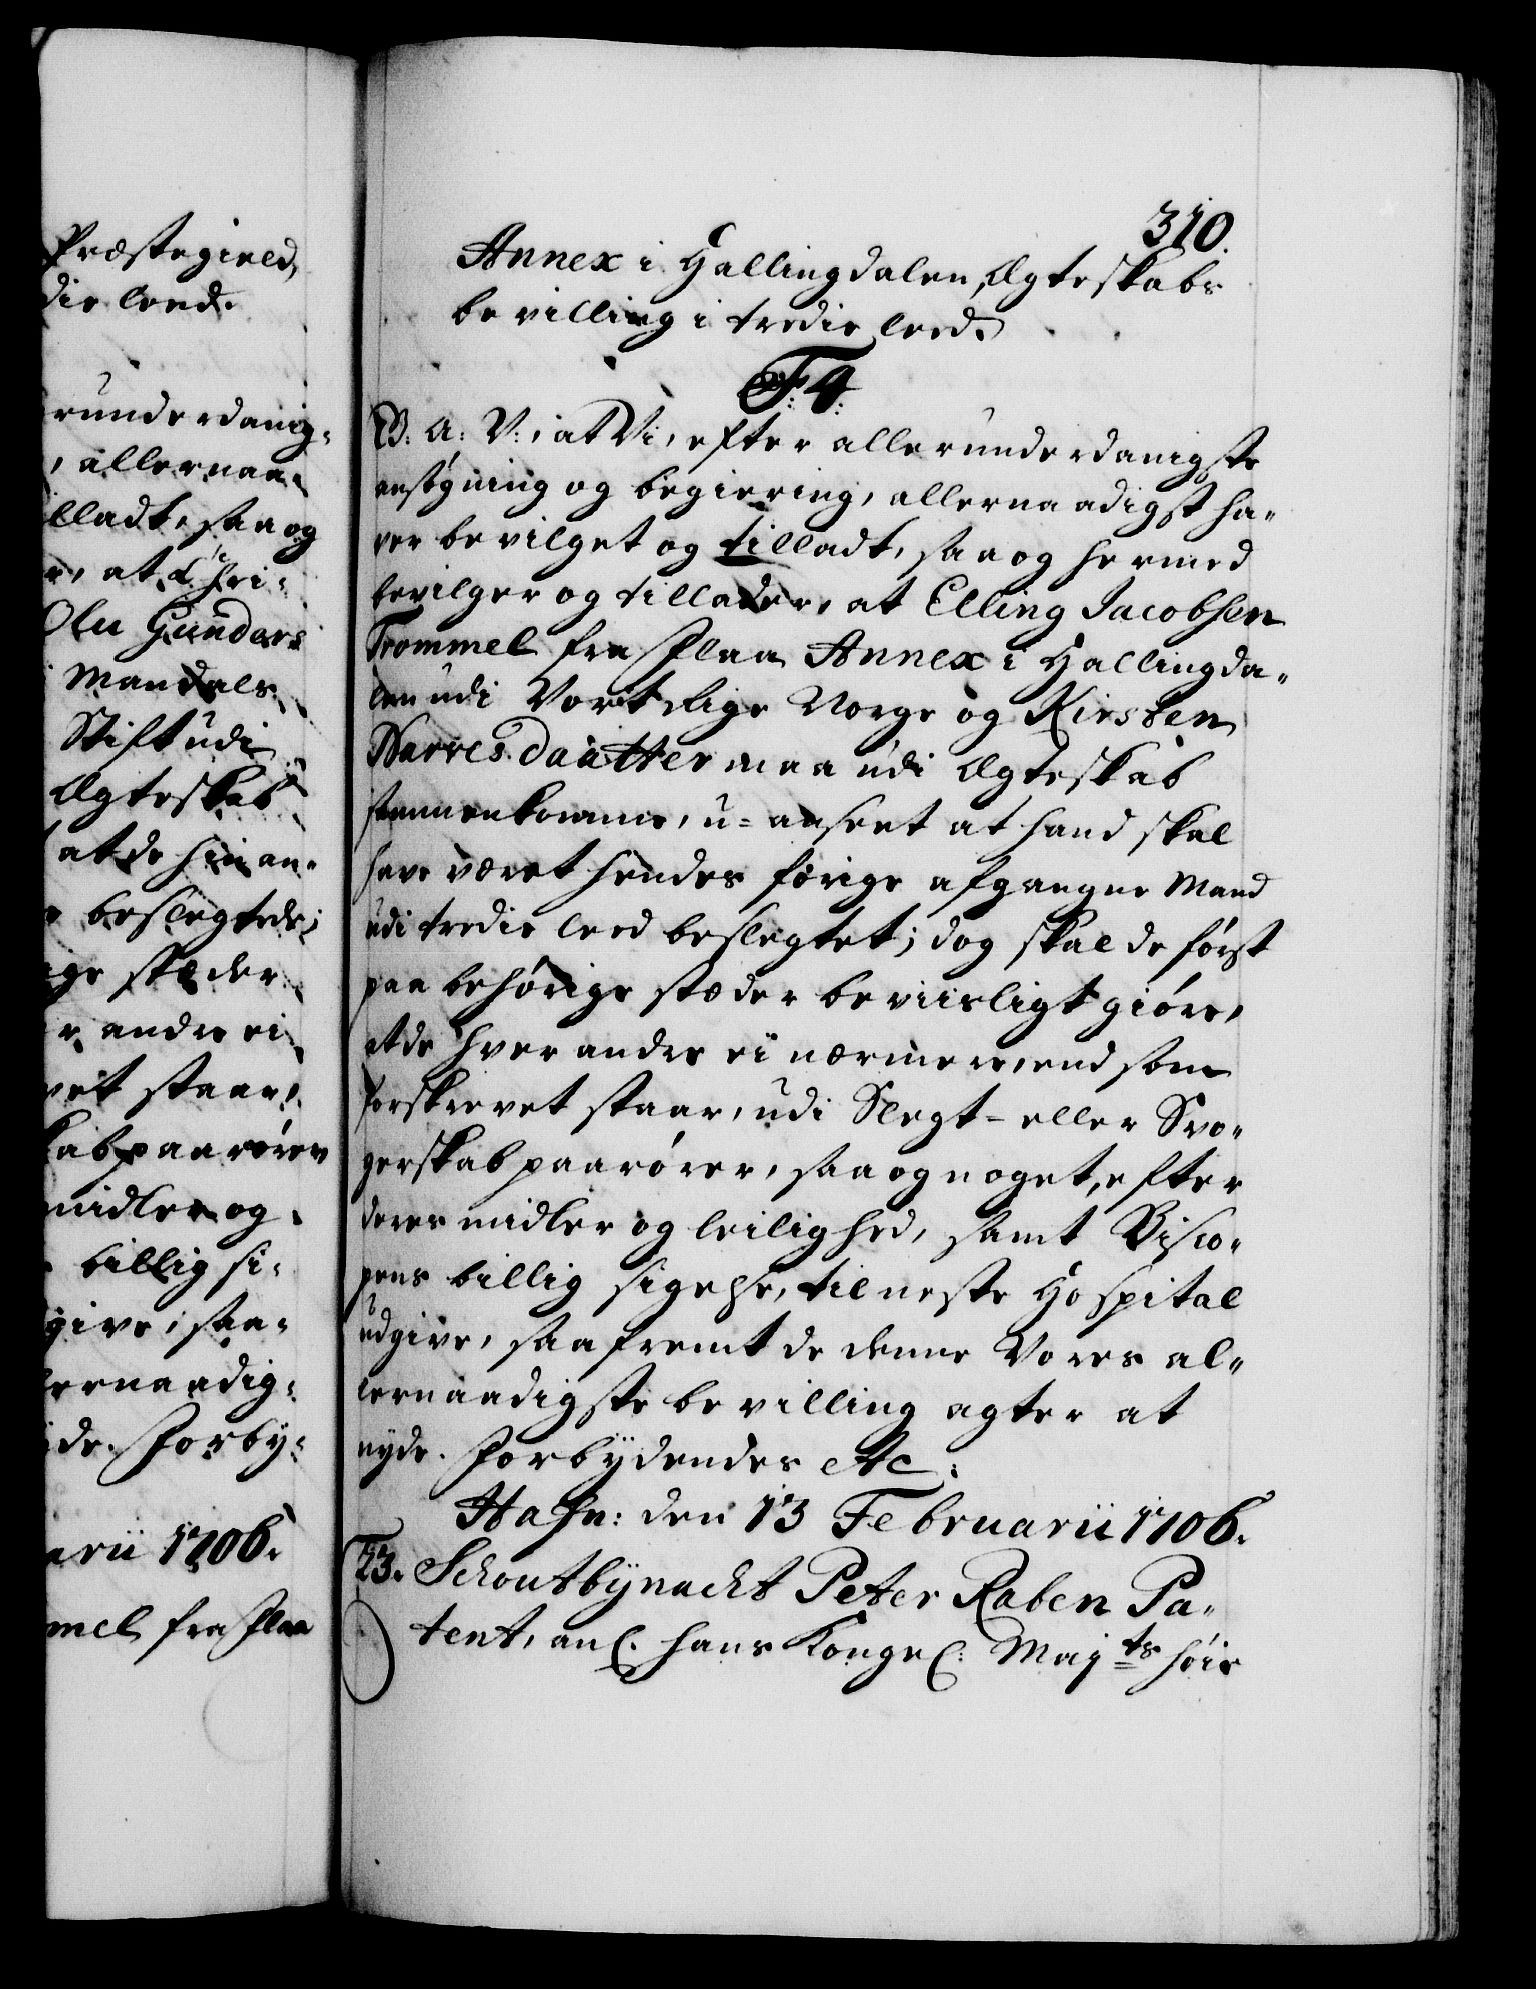 Præstegield,
die leed.
runderdanig-
, allernaa-
lladt, saa og
r, at Chri-
Olu Gunders
Mandals
Stift udi
Ægteskab
at de hinan-
beslegtede;
ge stæder
r andre ei
vet staar,
kab paarører
midler og
billig si-
give, saa-
lernaadig-
de. Forby-
arii 1706.
mel fra Flaa
310.
Annex i Hallingdalen, Ægteskabs
bevilling i tredie leed.
F. 4.
G: A: V:, at Vi, efter allerunderdanigste
ansøgning og begiering, allernaadigst ha-
ver bevilget og tilladt, saa og hermed
bevilger og tillader, at Elling Jacobsen
Trommel fra Flaa Annex i Hallingda-
len udi Vort Rige Norge og Kirsten
Narves daatter maa udi Ægteskab
sammenkomme, u-anseet at hand skal
have været hendes forrige afgangne Mand
udi tredie leed beslegtet; dog skal de først
paa behørige stæder beviisligt giøre,
at de hver andre ei nærmere, end som
forskrevet staar, udi Slegt- eller Svo-
gerskab paarører, saa og noget, efter
deres midler og leilighed, samt Bisco-
pens billig sigelse, til neste Hospital
udgive, saafremt de denne Vores al-
lernaadigste bevilling agter at
nyde. Forbydendes etc:
Hafn: den 13 Februarii 1706.
23. Schoutbynacht Peter Raben Pa-
tent, anl. hans Kongel: Maj ts høie